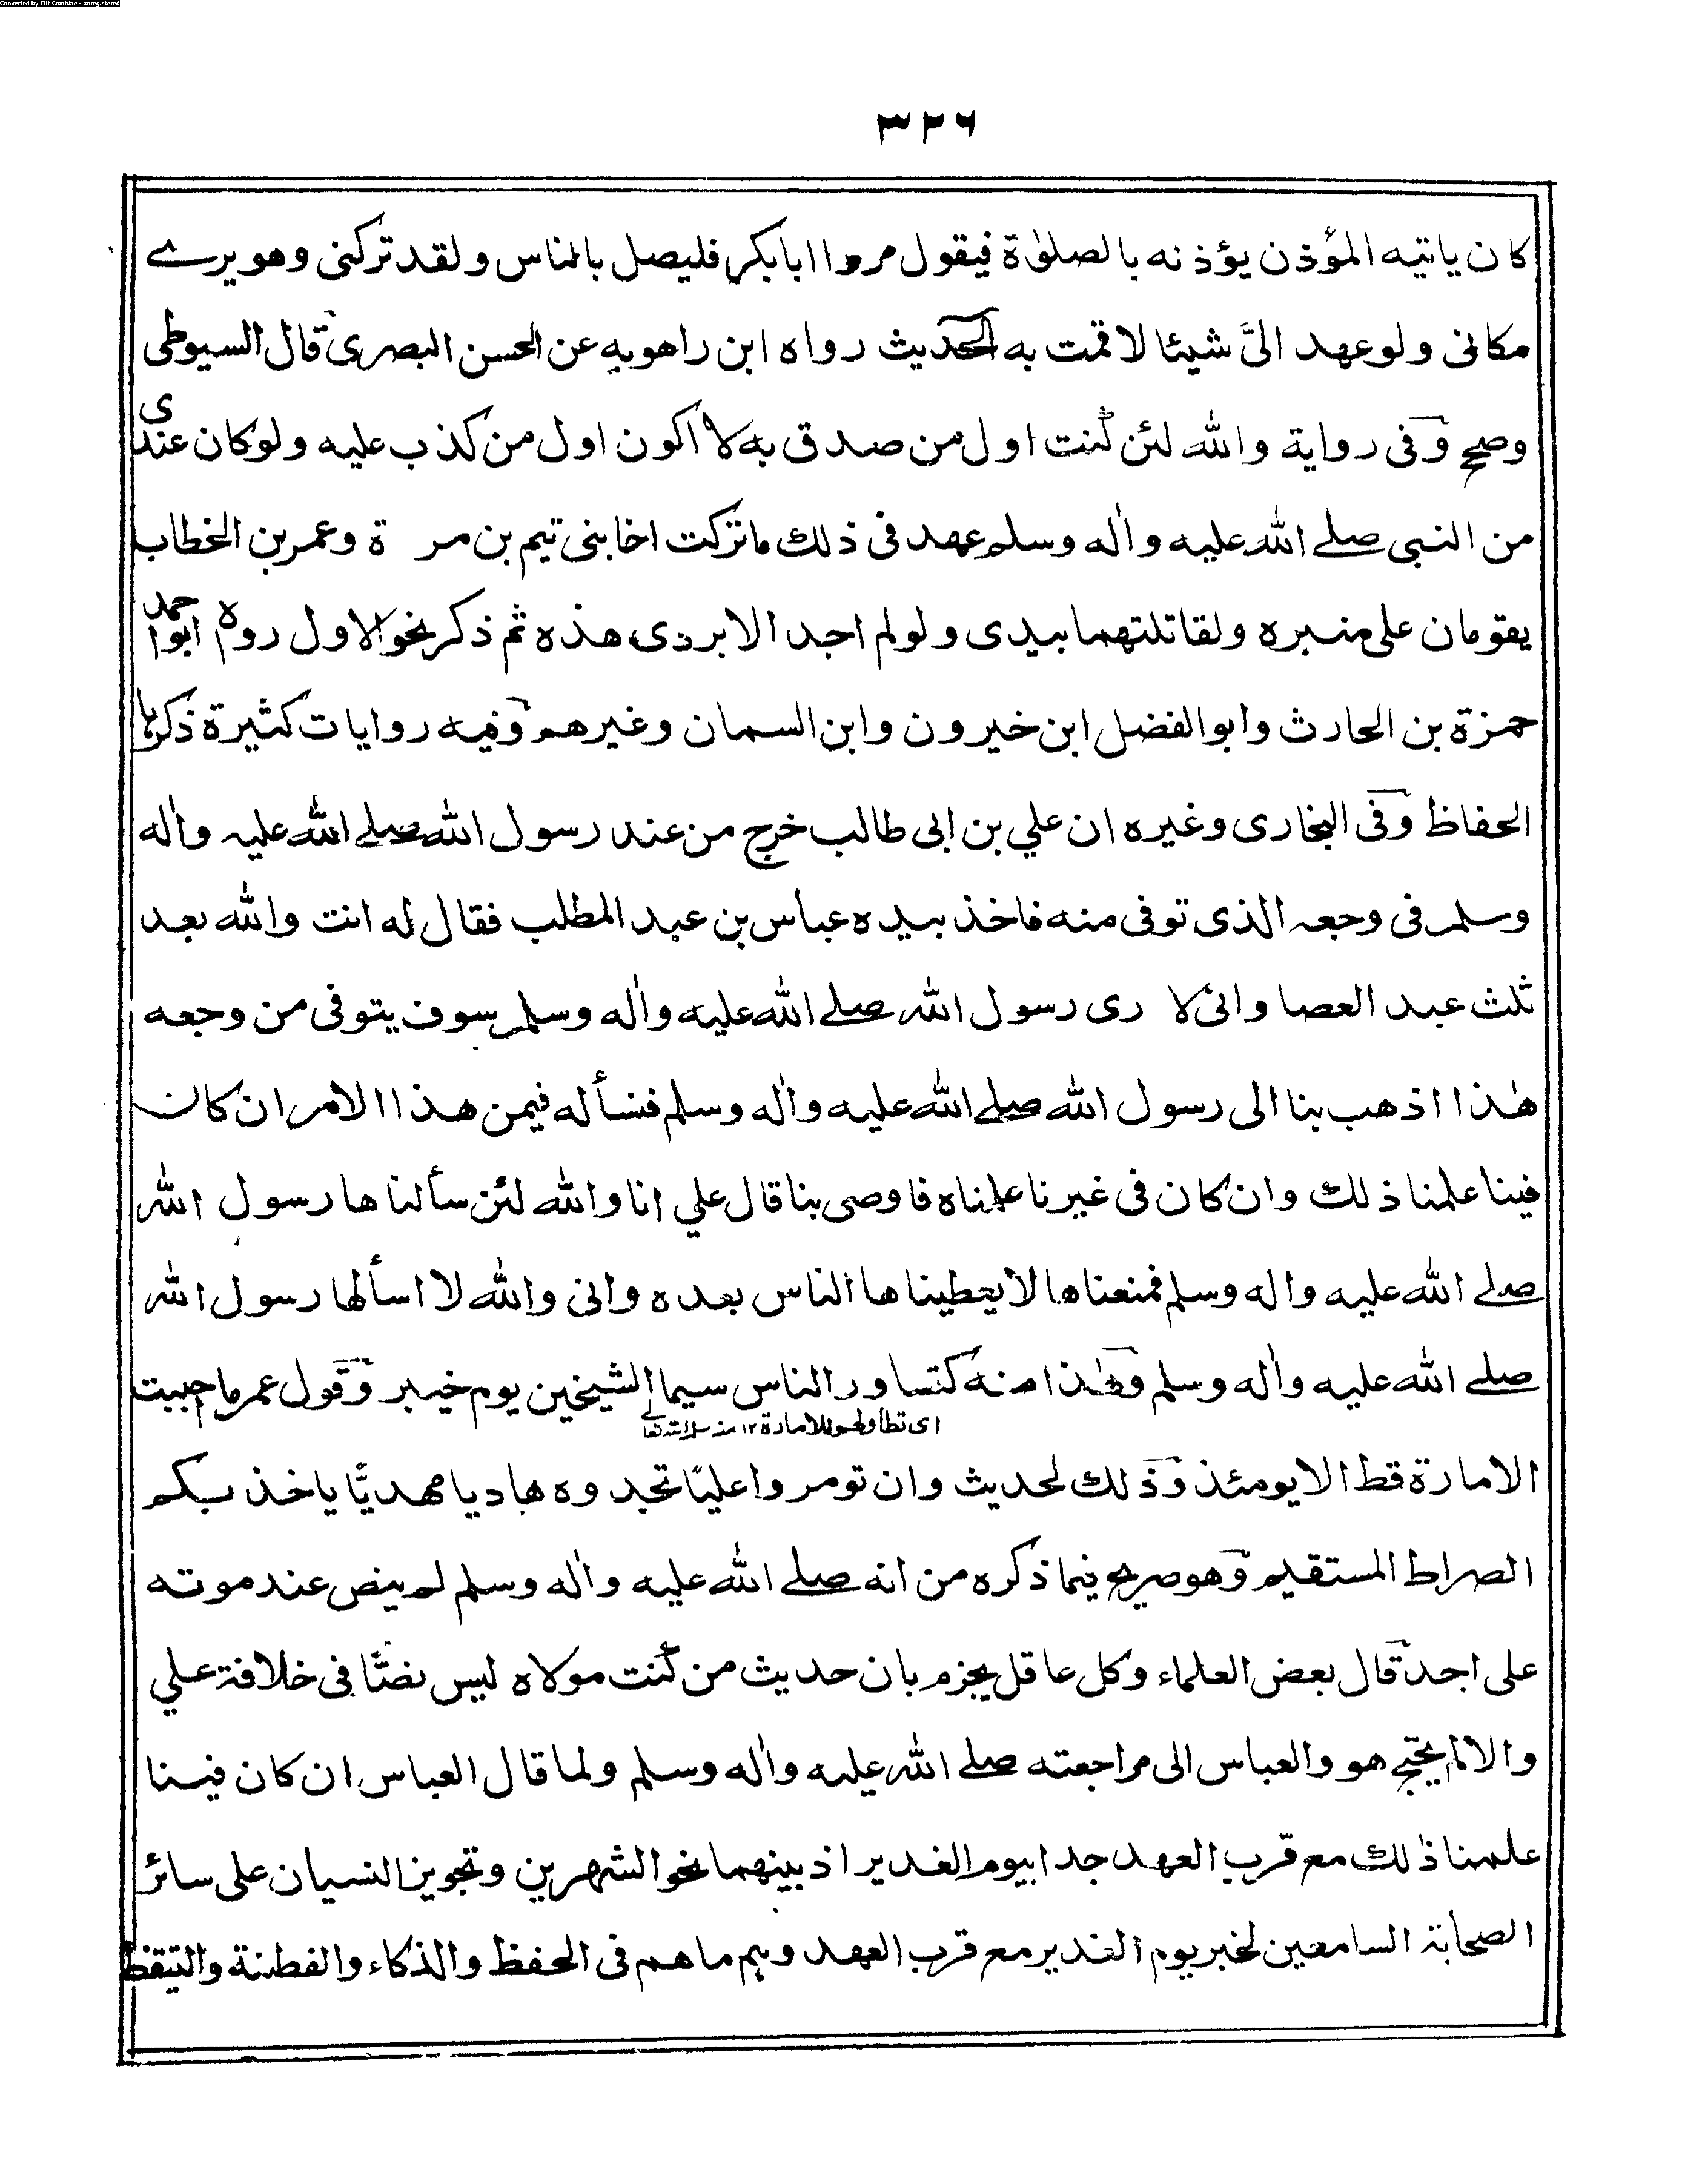 Converted by Tiff Combine - unregistered
٣٢٦
كان ياتيه المؤذن يؤذنه بالصلوٰة فيقول مروا ابابكر فليصل بالناس ولقد تركنى وهو يرے
مكانى ولو عهد الىَّ شيئا لاقمت به الحديث رواه ابن راهويه عن الحسن البصرى قال السيوطى
وصح وفى رواية والله لئن كنت اول من صدق به لا اكون اول من كذب عليه ولو كان عندى
من النبى صلے الله عليه واٰله وسلم عهد فى ذلك ماتركت اخا بنى تيم بن مرة وعمر بن الخطاب
يقومان على منبره ولقاتلتهما بيدى ولو لم اجد الا بردى هذه ثم ذكر نحو الاول رواه ابواحمد
حمزة بن الحارث وابو الفضل ابن خيرون وابن السمان وغيرهم وفيه روايات كثيرة ذكرها
الحفاظ وفى البخارى وغيره ان علي بن ابى طالب خرج من عند رسول الله صلے الله عليه واٰله
وسلم فى وجعه الذى توفى منه فاخذ بيده عباس بن عبد المطلب فقال له انت والله بعد
ثلث عبد العصا وانى لا رى رسول الله صلے الله عليه واٰله وسلم سوف يتوفى من وجعه
هٰذا اذهب بنا الى رسول الله صلے الله عليه واٰله وسلم فنسأله فيمن هذا الامر ان كان
فينا علمنا ذلك وان كان فى غيرنا علمناه فاوصى بنا قال علي انا والله لئن سألناها رسول الله
صلے الله عليه واله وسلم فمنعناها لا يعطيناها الناس بعده وانى والله لا اسألها رسول الله
صلے الله عليه واٰله وسلم وهٰذا منه كتساور الناس سيما الشيخين يوم خيبر وقول عمر ما احببت
اى تطاولهم للامارة ١٢ منه سلمه الله تعالے
الامارة قط الا يومئذ وذلك لحديث وان تومروا عليًا تجدوه هاديا مهديًّا ياخذ بكم
الصراط المستقيم وهو صريح فيما ذكره من انه صلے الله عليه واٰله وسلم لم ينص عند موته
على احد قال بعض العلماء وكل عاقل يجزم بان حديث من كنت مولاه ليس نصًّا فى خلافة علي
والا لم يحتج هو والعباس الى مراجعته صلے الله عليه واٰله وسلم ولما قال العباس ان كان فينا
علمنا ذلك مع قرب العهد جدا بيوم الغدير اذ بينهما نحو الشهرين وتجويز النسيان على سائر
الصحابة السامعين لخبر يوم الغدير مع قرب العهد وهم ماهم فى الحفظ والذكاء والفطنة والتيقظ